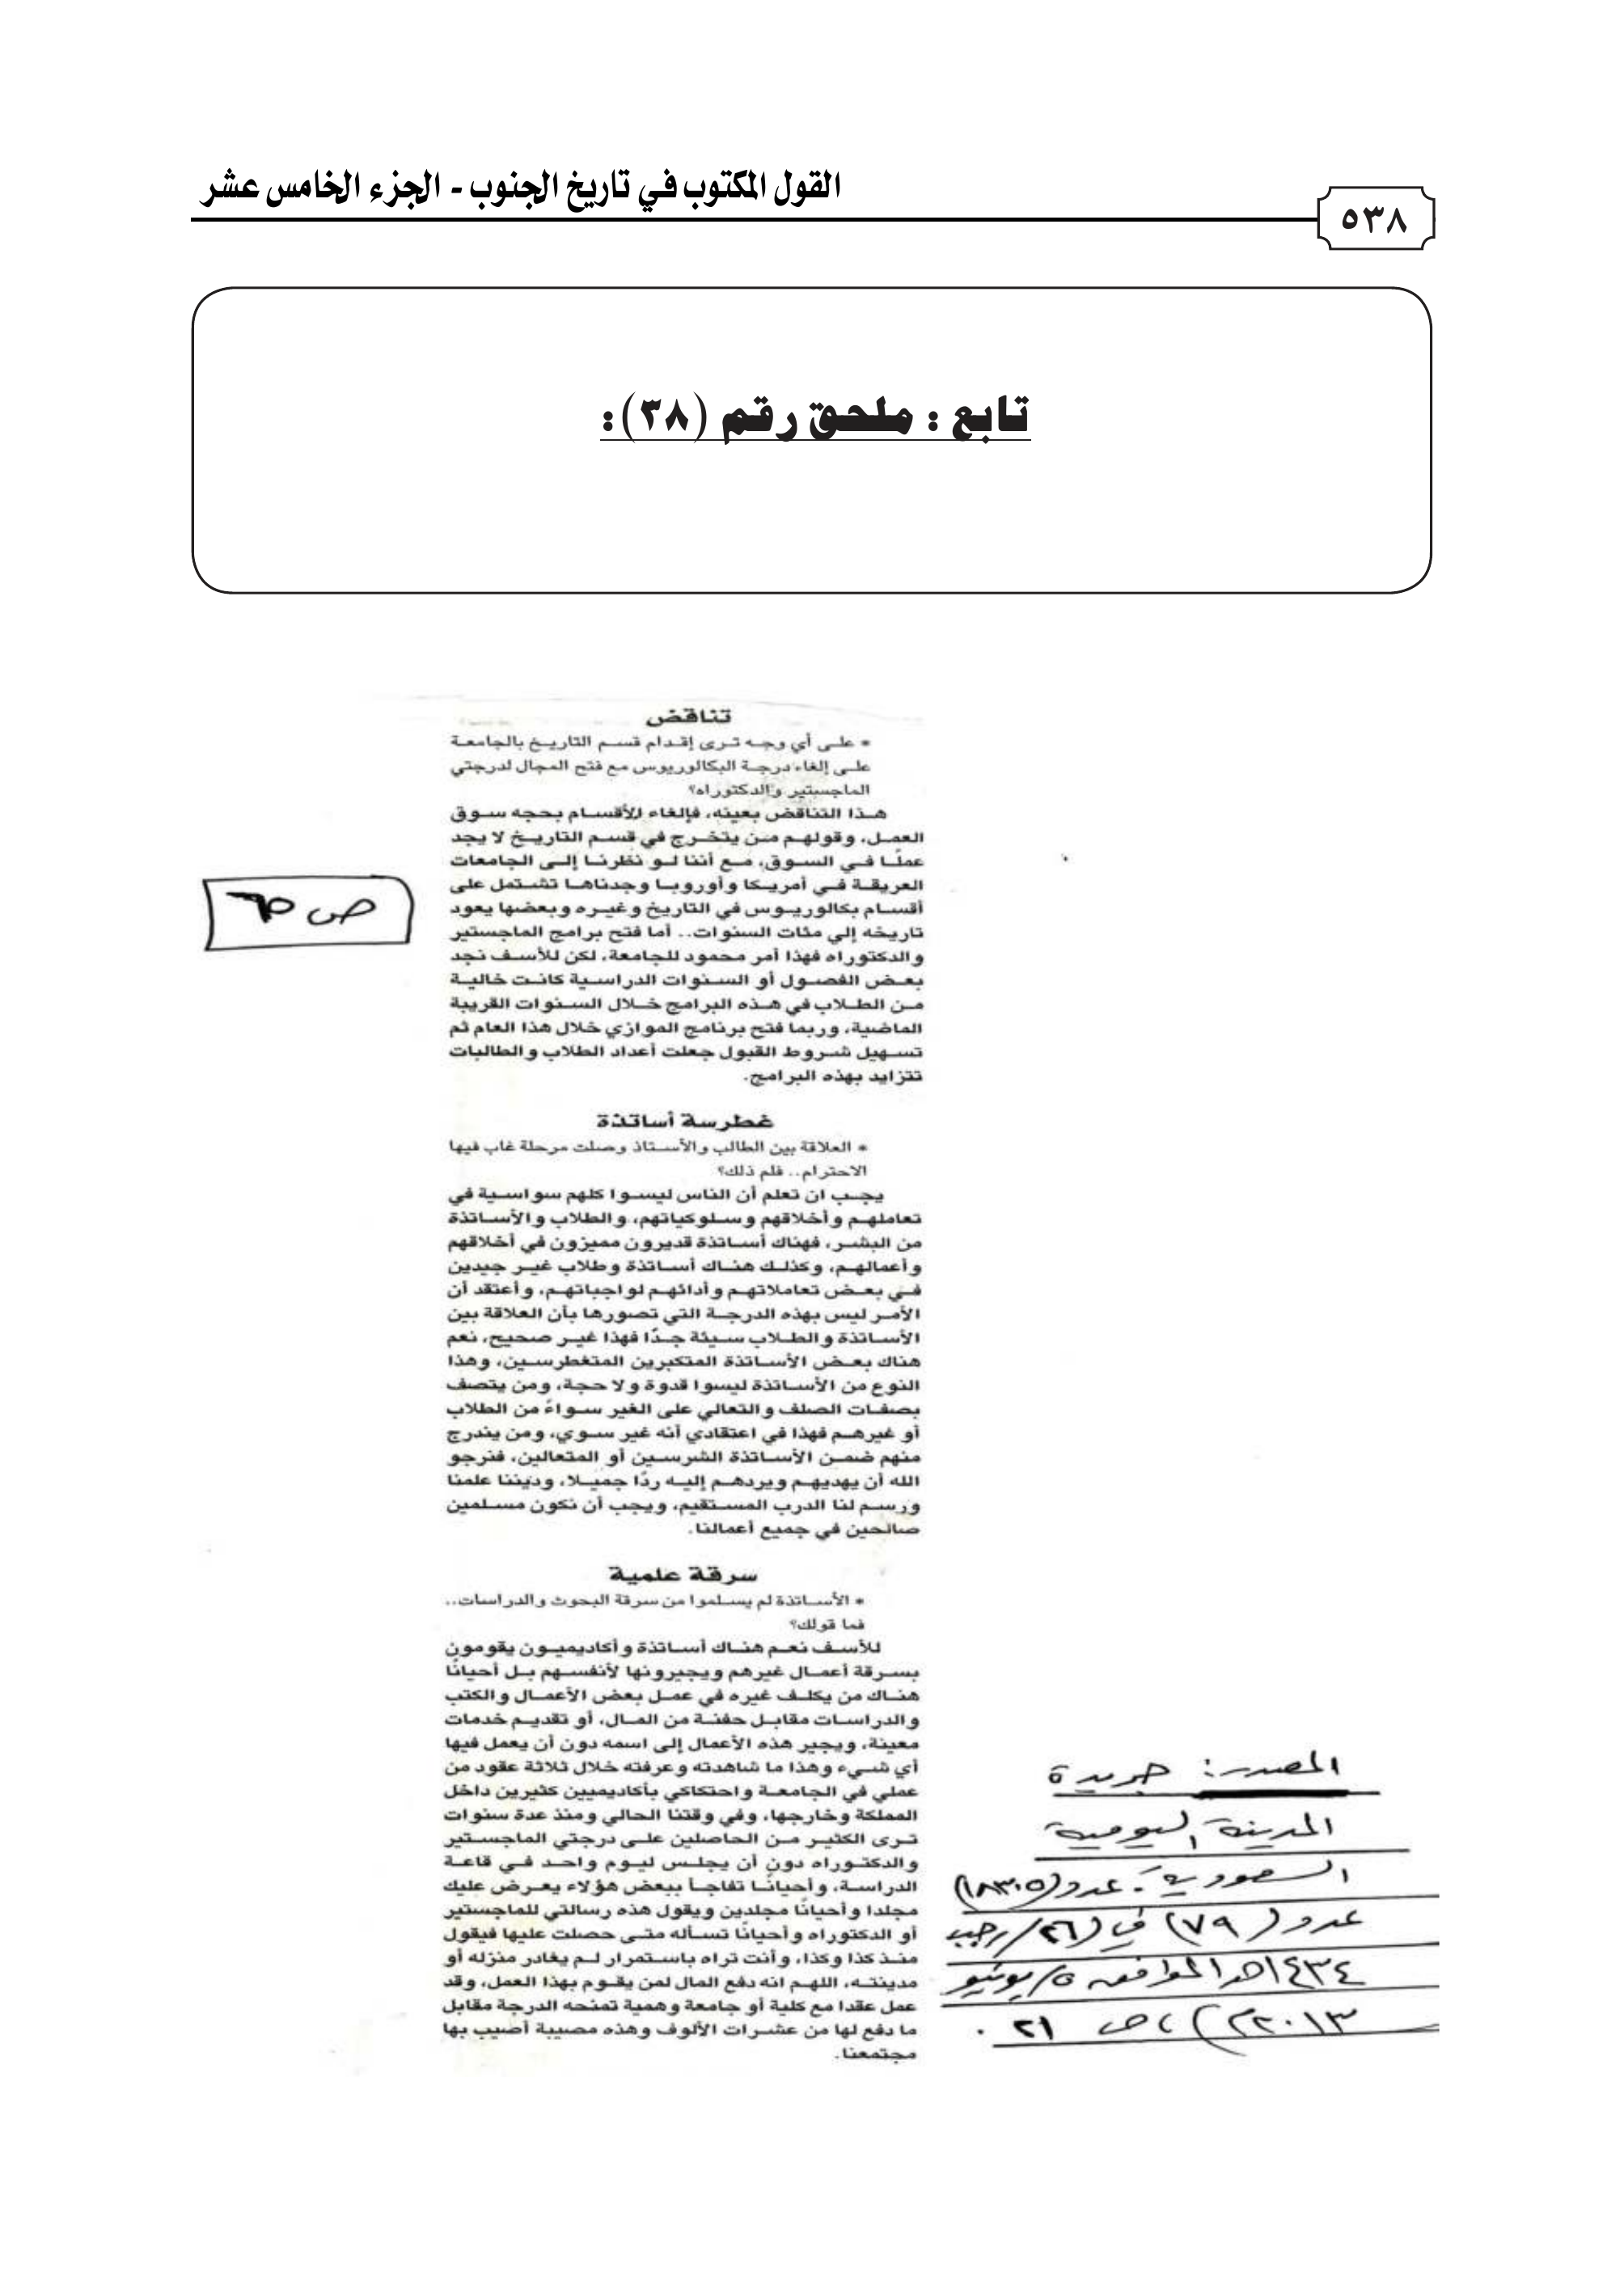 القول المكتوب في تاريخ الجنوب - الجزء الخامس عشر
٥٣٨
تابع : ملحق رقم (٣٨):
تناقض
* على أي وجه ترى إقدام قسم التاريخ بالجامعة
على إلغاء درجة البكالوريوس مع فتح المجال لدرجتي
الماجستير والدكتوراه؟
هذا التناقض بعينه، فإلغاء الأقسام بحجه سوق
العمل، وقولهم من يتخرج في قسم التاريخ لا يجد
عملًا في السوق، مع أننا لو نظرنا إلى الجامعات
العريقة في أمريكا وأوروبا وجدناها تشتمل على
أقسام بكالوريوس في التاريخ وغيره وبعضها يعود
تاريخه إلي مئات السنوات.. أما فتح برامج الماجستير
والدكتوراه فهذا أمر محمود للجامعة، لكن للأسف نجد
بعض الفصول أو السنوات الدراسية كانت خالية
من الطلاب في هذه البرامج خلال السنوات القريبة
الماضية، وربما فتح برنامج الموازي خلال هذا العام ثم
تسهيل شروط القبول جعلت أعداد الطلاب والطالبات
تتزايد بهذه البرامج.
ص ٦٥
غطرسة أساتذة
* العلاقة بين الطالب والأستاذ وصلت مرحلة غاب فيها
الاحترام.. فلم ذلك؟
يجب ان تعلم أن الناس ليسوا كلهم سواسية في
تعاملهم وأخلاقهم وسلوكياتهم، والطلاب والأساتذة
من البشر، فهناك أساتذة قديرون مميزون في أخلاقهم
وأعمالهم، وكذلك هناك أساتذة وطلاب غير جيدين
في بعض تعاملاتهم وأدائهم لواجباتهم، وأعتقد أن
الأمر ليس بهذه الدرجة التي تصورها بأن العلاقة بين
الأساتذة والطلاب سيئة جدًا فهذا غير صحيح، نعم
هناك بعض الأساتذة المتكبرين المتغطرسين، وهذا
النوع من الأساتذة ليسوا قدوة ولا حجة، ومن يتصف
بصفات الصلف والتعالي على الغير سواءً من الطلاب
أو غيرهم فهذا في اعتقادي أنه غير سوي، ومن يندرج
منهم ضمن الأساتذة الشرسين أو المتعالين، فنرجو
الله أن يهديهم ويردهم إليه ردًا جميلا، وديننا علمنا
ورسم لنا الدرب المستقيم، ويجب أن نكون مسلمين
صالحين في جميع أعمالنا.
سرقة علمية
* الأساتذة لم يسلموا من سرقة البحوث والدراسات..
فما قولك؟
للأسف نعم هناك أساتذة وأكاديميون يقومون
بسرقة أعمال غيرهم ويجيرونها لأنفسهم بل أحيانًا
هناك من يكلف غيره في عمل بعض الأعمال والكتب
والدراسات مقابل حفنة من المال، أو تقديم خدمات
معينة، ويجير هذه الأعمال إلى اسمه دون أن يعمل فيها
أي شيء وهذا ما شاهدته وعرفته خلال ثلاثة عقود من
عملي في الجامعة واحتكاكي بأكاديميين كثيرين داخل
المملكة وخارجها، وفي وقتنا الحالي ومنذ عدة سنوات
ترى الكثير من الحاصلين على درجتي الماجستير
والدكتوراه دون أن يجلس ليوم واحد في قاعة
الدراسة، وأحيانًا تفاجأ ببعض هؤلاء يعرض عليك
مجلدا وأحيانًا مجلدين ويقول هذه رسالتي للماجستير
أو الدكتوراه وأحيانًا تسأله متى حصلت عليها فيقول
منذ كذا وكذا، وأنت تراه باستمرار لم يغادر منزله أو
مدينته، اللهم انه دفع المال لمن يقوم بهذا العمل، وقد
عمل عقدا مع كلية أو جامعة وهمية تمنحه الدرجة مقابل
ما دفع لها من عشرات الألوف وهذه مصيبة أصيب بها
مجتمعنا.
المصدر: جريدة
المدينة اليومية
السعودية. عدد (١٨٣٠٥)
عدد (٧٩) في (٢٦/رجب
١٤٣٤هـ الموافق ٥/يونيو
٢٠١٣م)، ص ٢١.